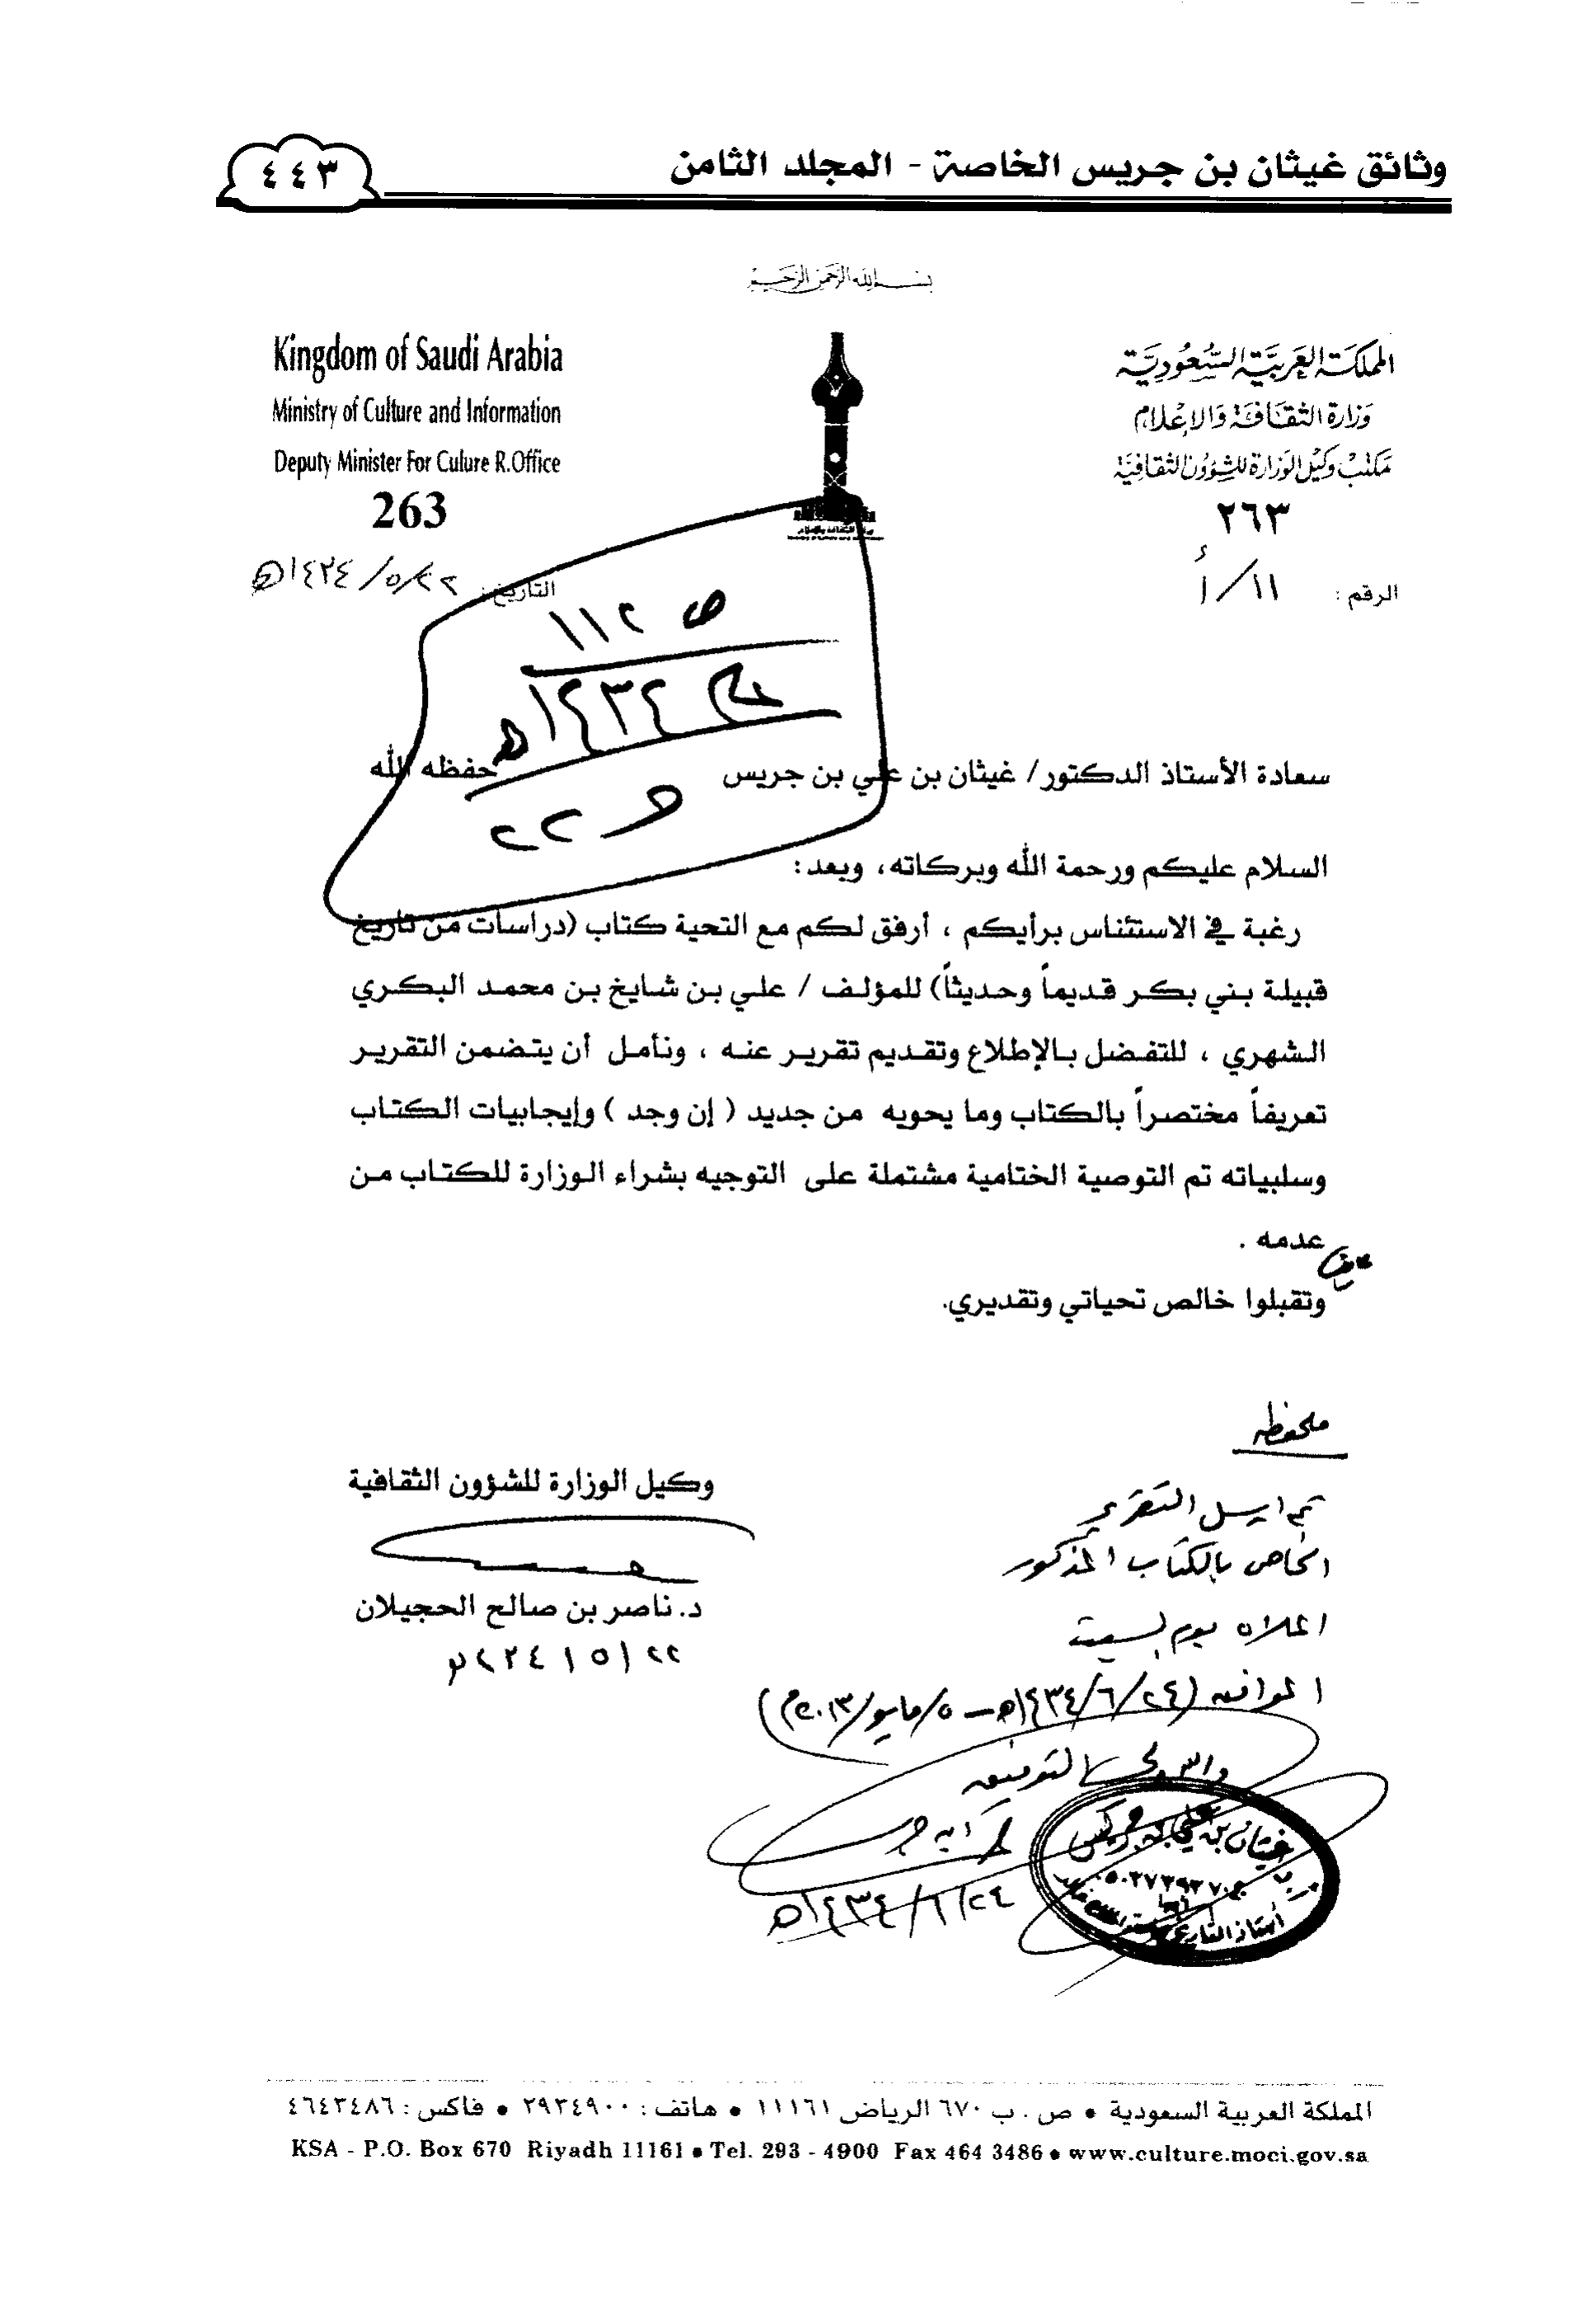 وثائق غيثان بن جريس الخاصة - المجلد الثامن
٤٤٣
بسم الله الرحمن الرحيم
المملكة العربية السعودية
وزارة الثقافة والإعلام
مكتب وكيل الوزارة للشؤون الثقافية
٢٦٣
الرقم : ١١/أ
Kingdom of Saudi Arabia
Ministry of Culture and Information
Deputy Minister For Culure R.Office
263
التاريخ: ٢٢/٥/١٤٣٤هـ
ص ١١٢
١٤٣٤هـ
٢٢
سعادة الأستاذ الدكتور/ غيثان بن علي بن جريس حفظه الله
السلام عليكم ورحمة الله وبركاته، وبعد:
رغبة في الاستئناس برأيكم ، أرفق لكم مع التحية كتاب (دراسات من تاريخ
قبيلة بني بكر قديماً وحديثاً) للمؤلف / علي بن شايخ بن محمد البكري
الشهري ، للتفضل بالإطلاع وتقديم تقرير عنه ، ونأمل أن يتضمن التقرير
تعريفاً مختصراً بالكتاب وما يحويه من جديد ( إن وجد ) وإيجابيات الكتاب
وسلبياته تم التوصية الختامية مشتملة على التوجيه بشراء الوزارة للكتاب من
عدمه .
وتقبلوا خالص تحياتي وتقديري.
وكيل الوزارة للشؤون الثقافية
د. ناصر بن صالح الحجيلان
ملحفظه
تم ارسل التقرير
الخاص بالكتاب المذكور
اعلاه يوم السبت
الموافق (٢٤/٦/١٤٣٤هـ – ٥/مايو/٢٠١٣م)
والله ولي التوفيق
ابن جريس
٢٤/٦/١٤٣٤هـ
غيثان بن علي بن جريس
أستاذ التاريخ
المملكة العربية السعودية • ص . ب ٦٧٠ الرياض ١١١٦١ • هاتف : ٢٩٣٤٩٠٠ • فاكس : ٤٦٤٣٤٨٦
KSA - P.O. Box 670 Riyadh 11161 • Tel. 293 - 4900 Fax 464 3486 • www.culture.moci.gov.sa